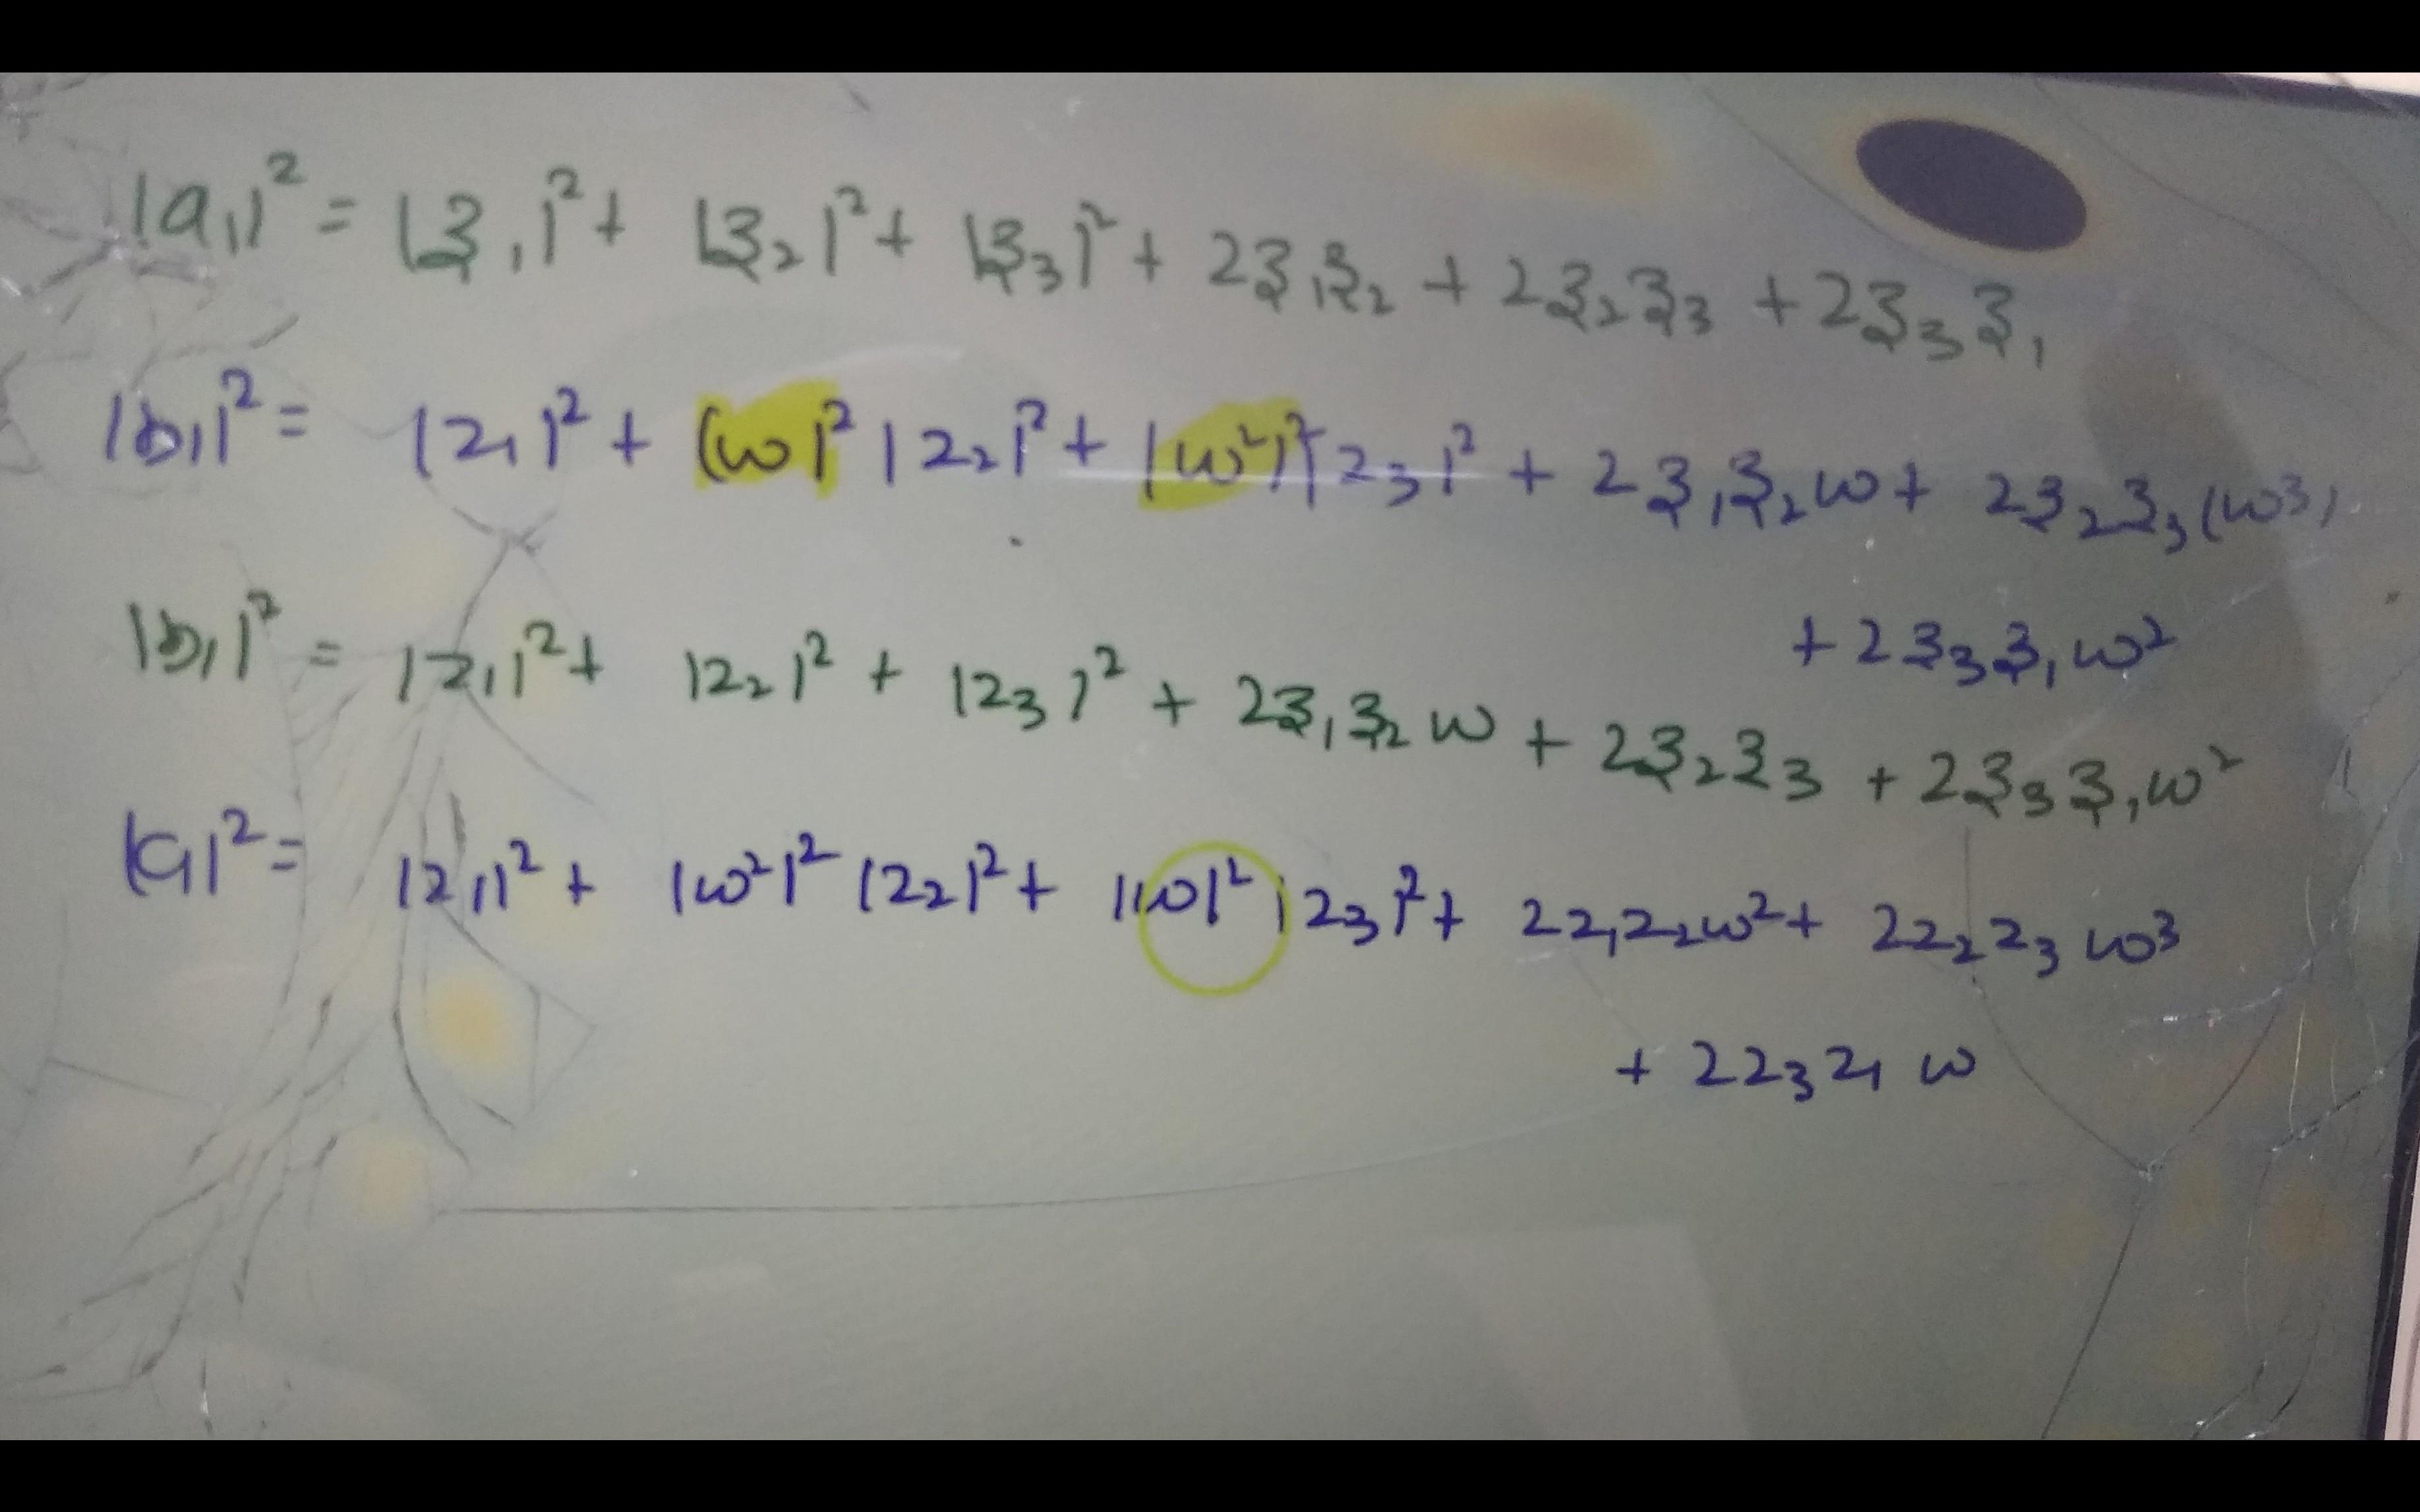 |a₁|² = |z₁|² + |z₂|² + |z₃|² + 2z₁z₂ + 2z₂z₃ + 2z₃z₁
|b₁|² = |z₁|² + |ω|² |z₂|² + |ω²|² |z₃|² + 2z₁z₂ω + 2z₂z₃(ω³)
+ 2z₃z₁ω²
|b₁|² = |z₁|² + |z₂|² + |z₃|² + 2z₁z₂ω + 2z₂z₃ + 2z₃z₁ω²
|c₁|² = |z₁|² + |ω²|² |z₂|² + |ω|² |z₃|² + 2z₁z₂ω² + 2z₂z₃ω³
+ 2z₃z₁ω